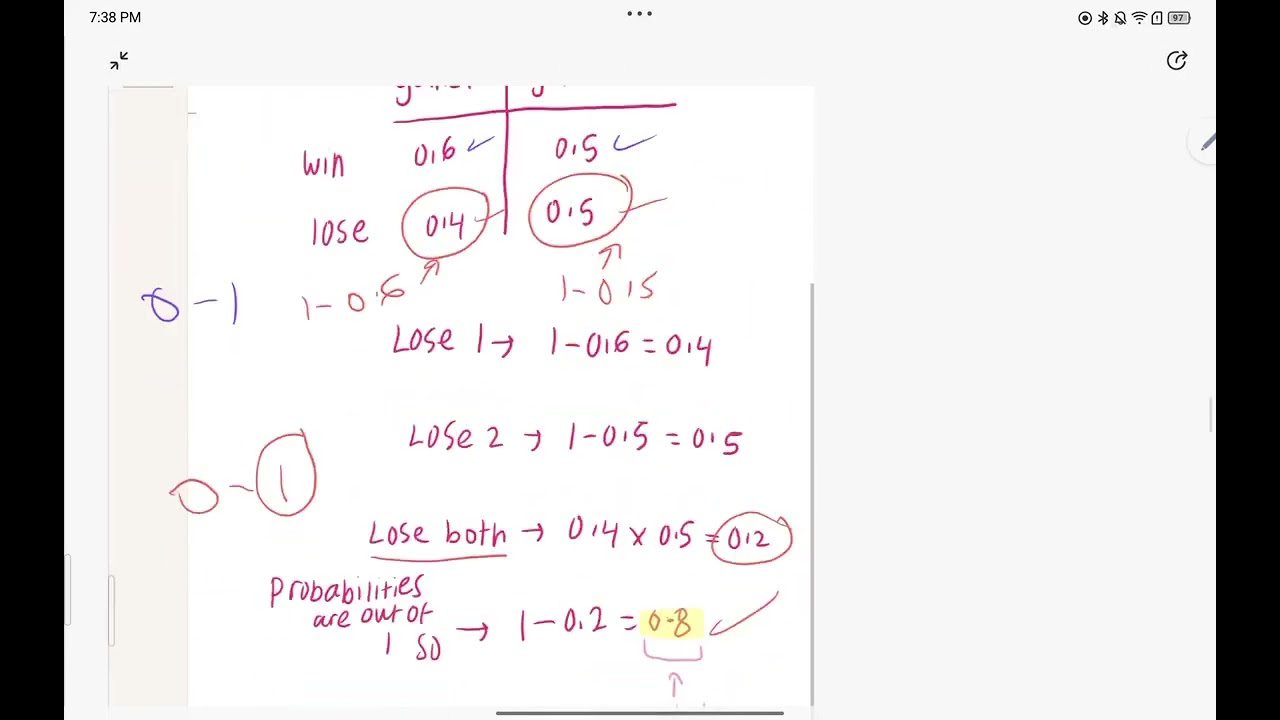 7:38 PM
97
win 0.6 0.5
lose 0.4 0.5
0-1 1-0.6 1-0.5
Lose 1→ 1-0.6=0.4
Lose 2 → 1-0.5=0.5
0-1
Lose both → 0.4 x 0.5=0.2
Probabilities
are out of
1 so → 1-0.2=0.8